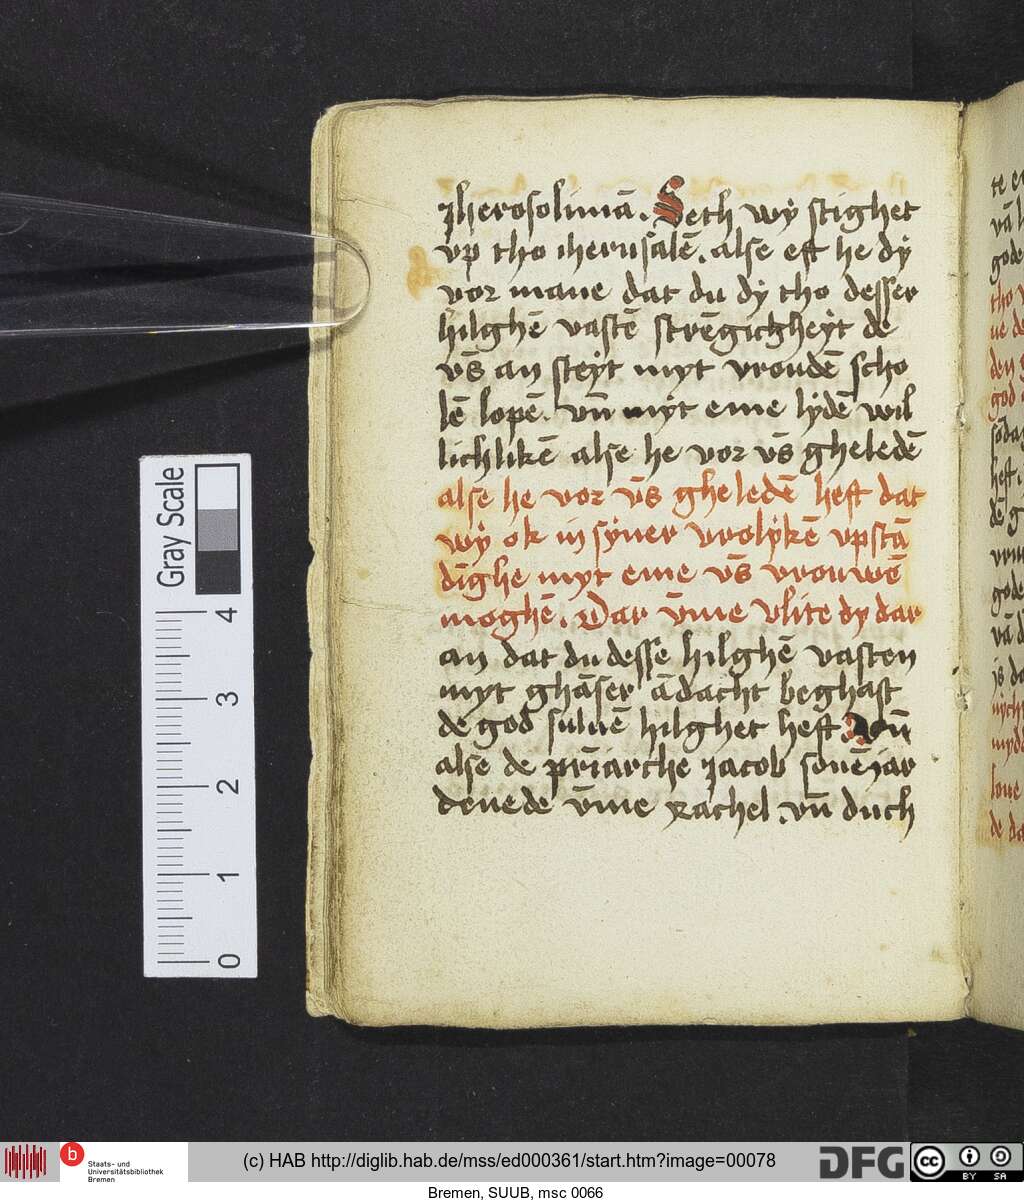 jherosolimā. Seth wÿ stighet
vp tho iherusalē. alse eft he dÿ
vor mane dat du dÿ tho desser
hilghē vastē strēgicgheÿt de
vs̄ an steÿt myt vroudē scho
lē lopē. vn̄ mÿt eme lÿdē wil
lichlikē alse he vor vs̄ gheledē
alse he vor vs̄ ghe ledē heft dat
wÿ ok in sÿner vrolÿkē vpstā
dīghe myt eme vs̄ vrouwē
moghē. Dar v̄me vlite dy dar
an dat du desse hilghē vasten
myt ghāser ādacht beghast
de god suluē hilghet heft Vn̄
alse de pr̄iarche jacob souē jar
denede v̄me Rachel. vn̄ duch
Gray Scale
4
3
2
1
0
b
Staats- und
Universitätsbibliothek
Bremen
(c) HAB http://diglib.hab.de/mss/ed000361/start.htm?image=00078
DFG
cc
BY SA
Bremen, SUUB, msc 0066